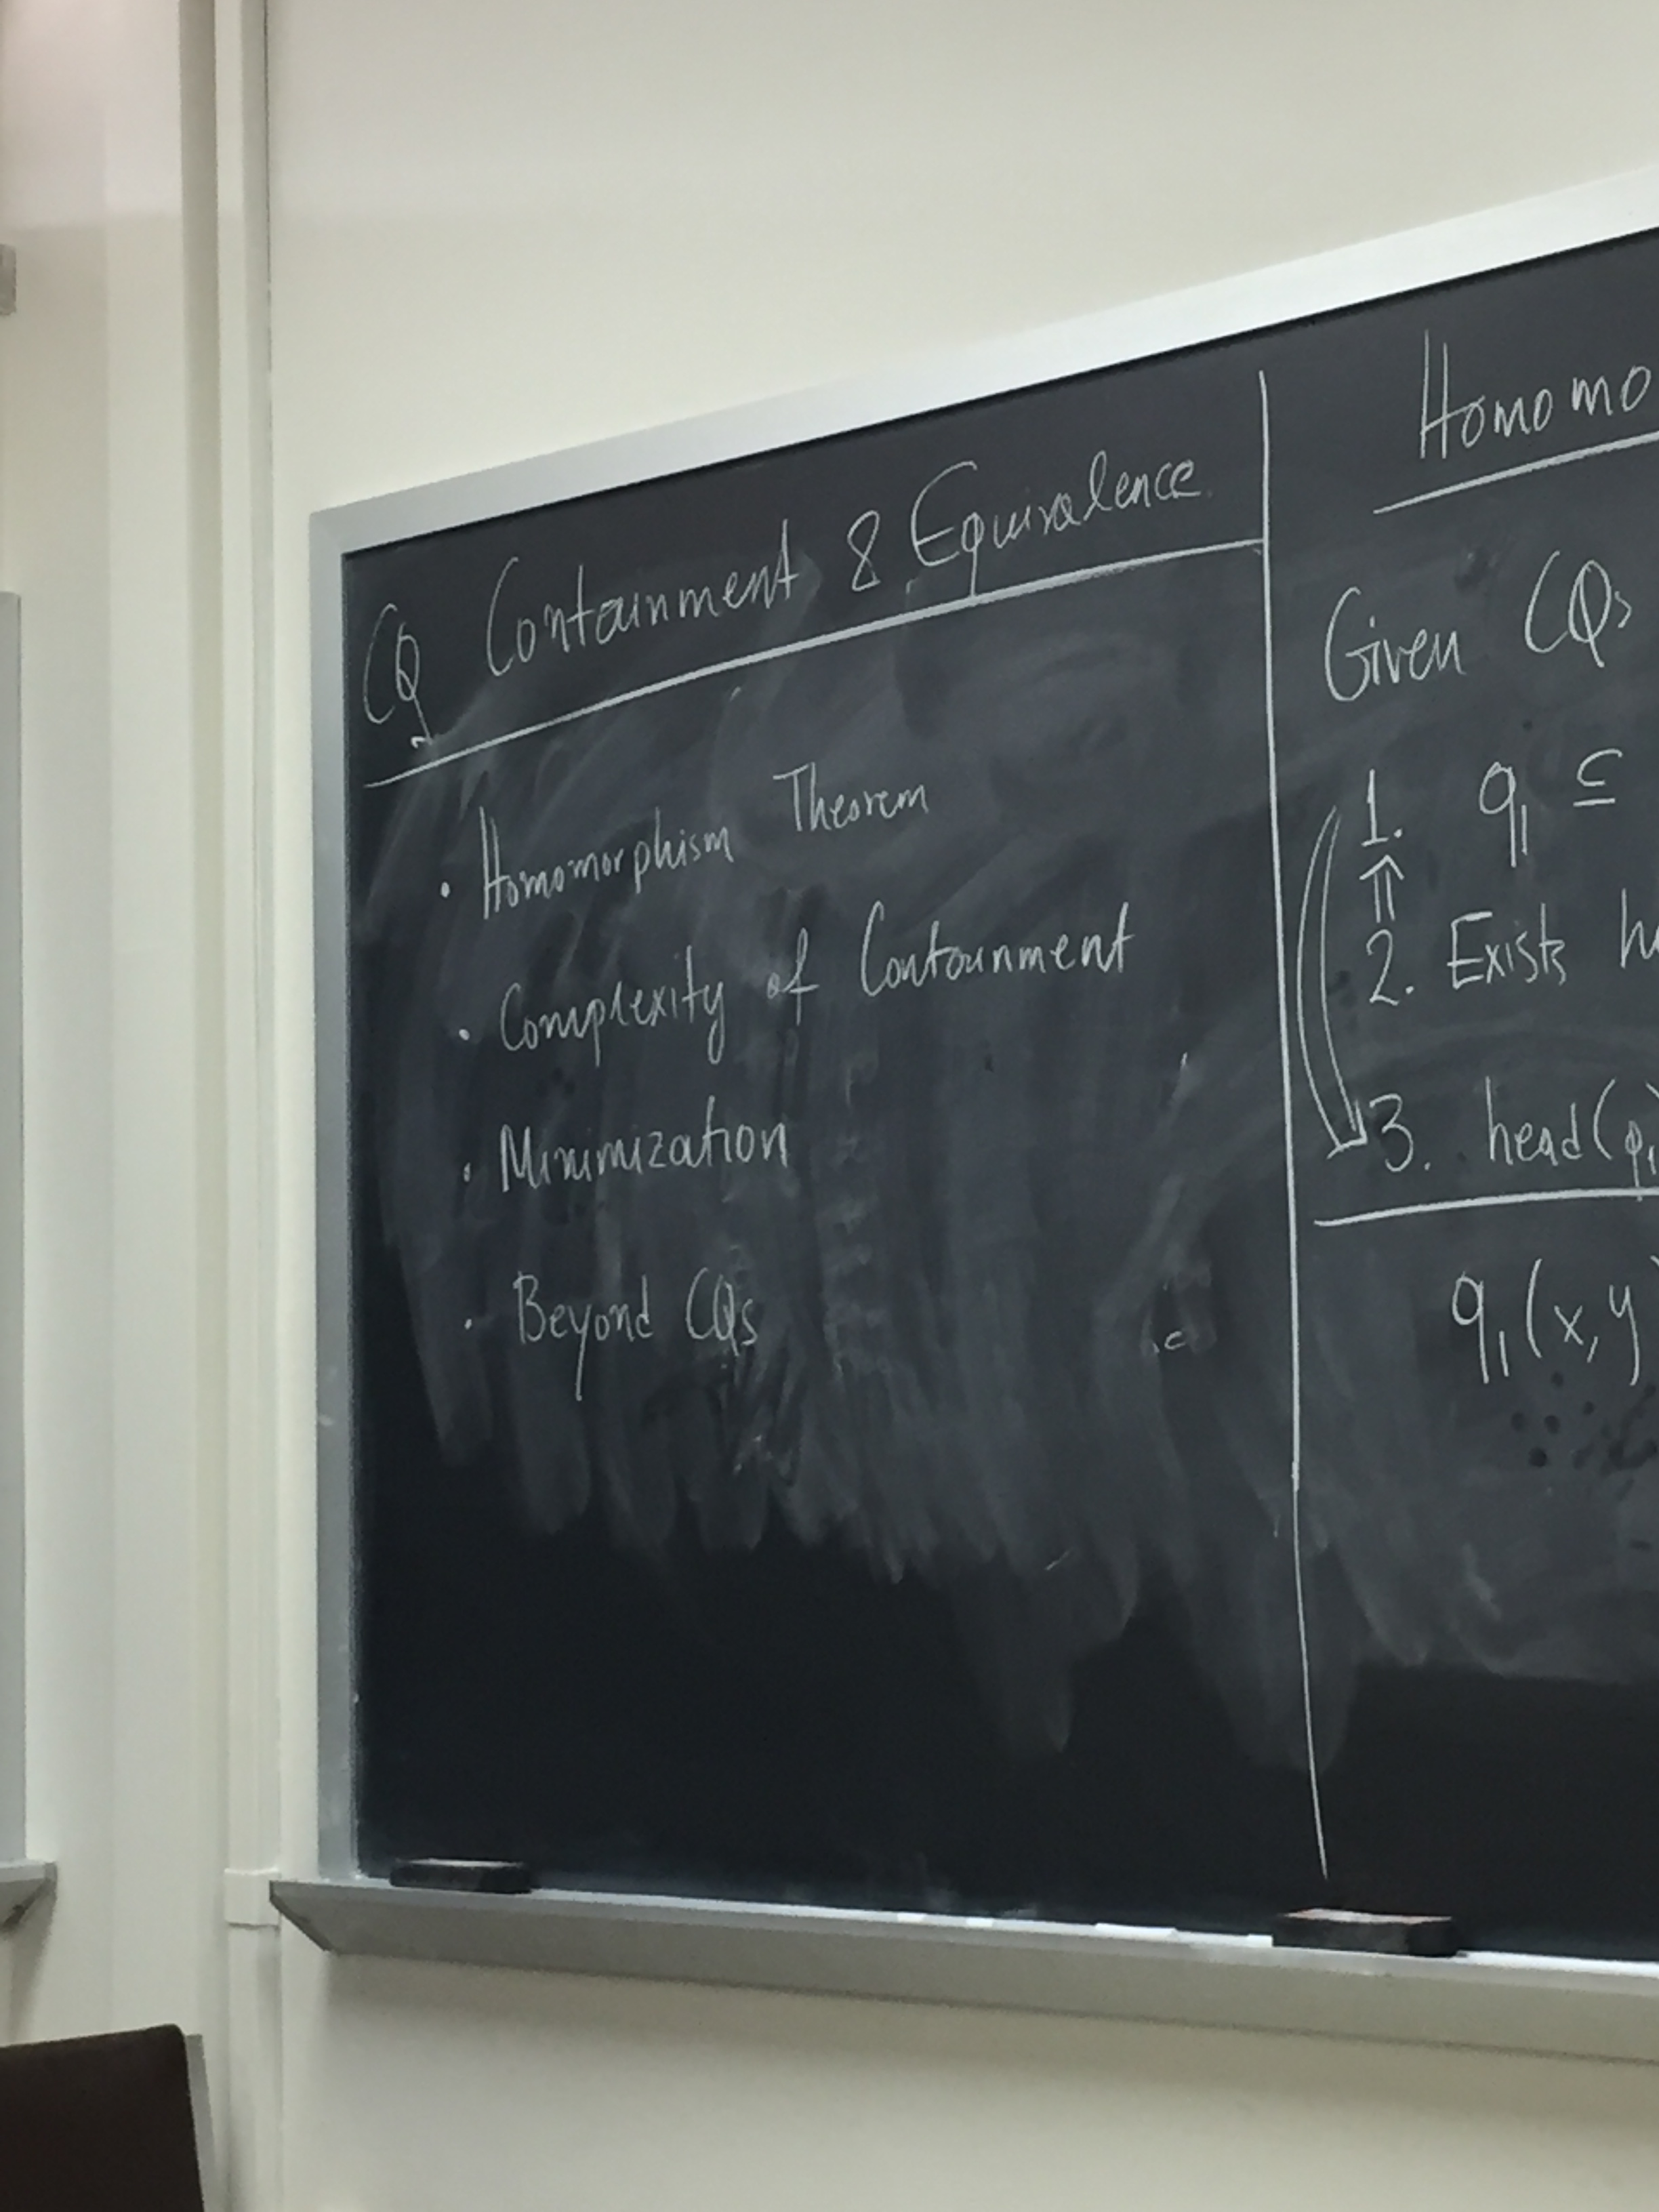 CQ Containment & Equivalence
• Homomorphism Theorem
• Complexity of Containment
• Minimization
• Beyond CQs
Homomo
Given CQs
1. q₁ ⊆
⇑
2. Exists ho
3. head(q₁)
q₁(x,y)